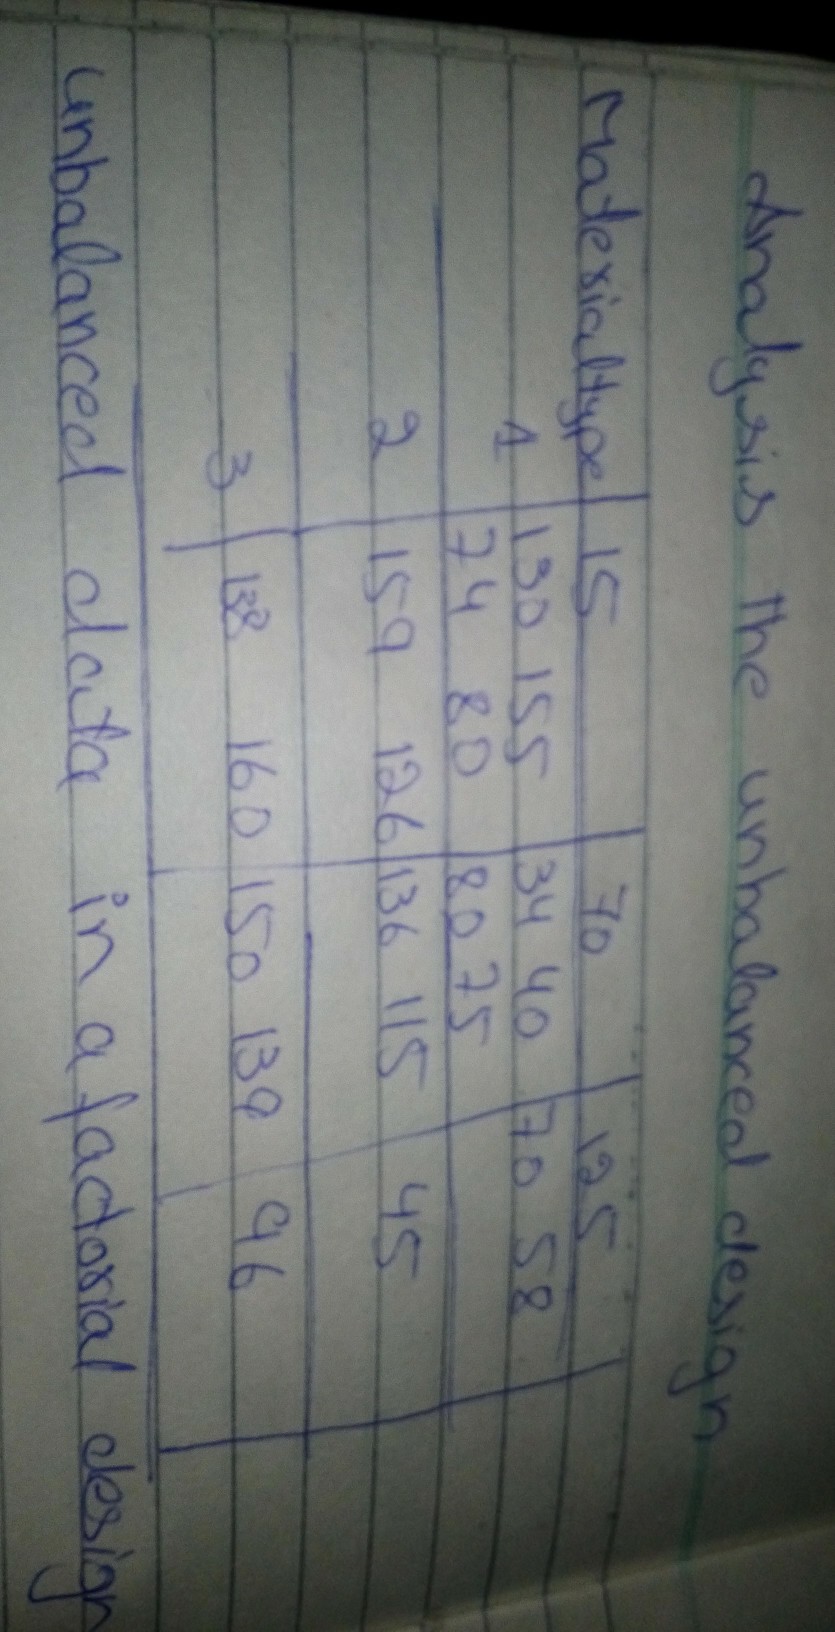 Analysis the unbalanced design
Material type 15 70 125
1 130 155 34 40 70 58
74 80 80 75
2 159 126 136 115 45
3 138 160 150 139 96
unbalanced data in a factorial design